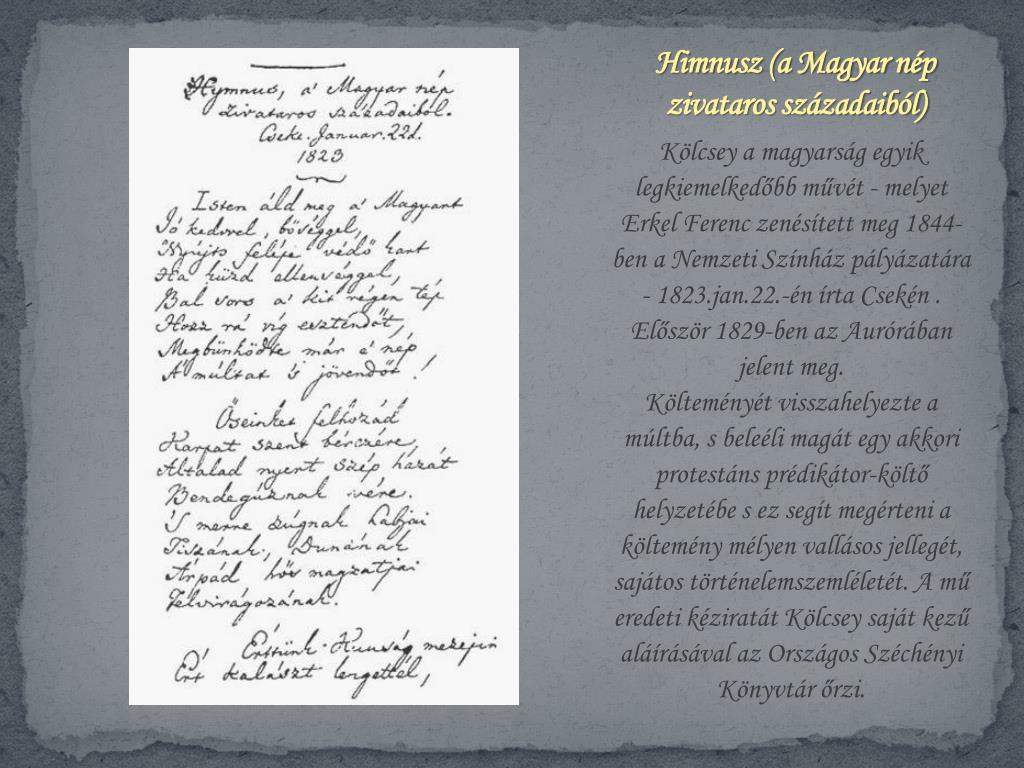 Hymnus, a' Magyar nép
zivataros századaiból.
Cseke. Januar. 22d.
1823
Isten áld meg a' Magyart
Jó kedvvel, bőséggel,
Nyújts feléje védő kart
Ha küzd ellenséggel,
Bal sors a' kit régen tép
Hozz rá víg esztendőt,
Megbűnhődte már e' nép
A' múltat 's jövendőt!
Őseinket felhozád
Kárpát szent bérczére,
Általad nyert szép hazát
Bendegúznak vére.
'S merre zúgnak habjai
Tiszának, Dunának
Árpád hős magzatjai
Felvirágozának.
Értünk Kunság mezején
Ért kalászt lengettél,
Himnusz (a Magyar nép
zivataros századaiból)
Kölcsey a magyarság egyik
legkiemelkedőbb művét - melyet
Erkel Ferenc zenésített meg 1844-
ben a Nemzeti Színház pályázatára
- 1823.jan.22.-én írta Csekén .
Először 1829-ben az Aurórában
jelent meg.
Költeményét visszahelyezte a
múltba, s beleéli magát egy akkori
protestáns prédikátor-költő
helyzetébe s ez segít megérteni a
költemény mélyen vallásos jellegét,
sajátos történelemszemléletét. A mű
eredeti kéziratát Kölcsey saját kezű
aláírásával az Országos Széchényi
Könyvtár őrzi.